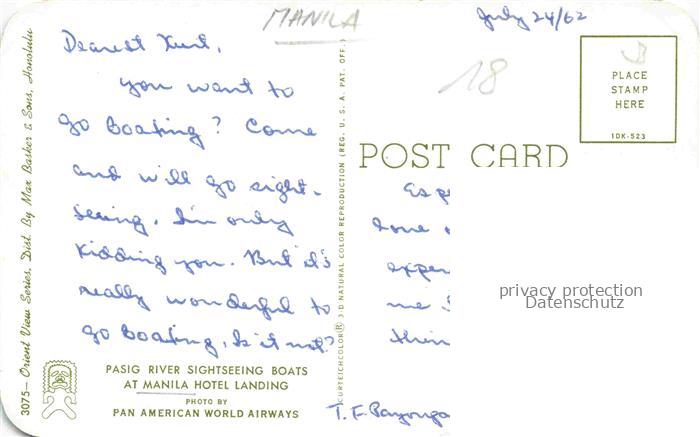 MANILA
July 24/62
Dearest Kurt,
you want to
go boating? Come
and will go sight-
seeing. I'm only
kidding you. But it's
really wonderful to
go boating, Is it not?
PASIG RIVER SIGHTSEEING BOATS
AT MANILA HOTEL LANDING
PHOTO BY
PAN AMERICAN WORLD AIRWAYS
3075— Orient View Series, Dist. By Max Basker & Sons, Honolulu
CURTEICHCOLOR® 3-D NATURAL COLOR REPRODUCTION (REG. U. S. A. PAT. OFF.)
18
POST CARD
PLACE
STAMP
HERE
1DK-523
Esp
expe
me
privacy protection
Datenschutz
T. F.